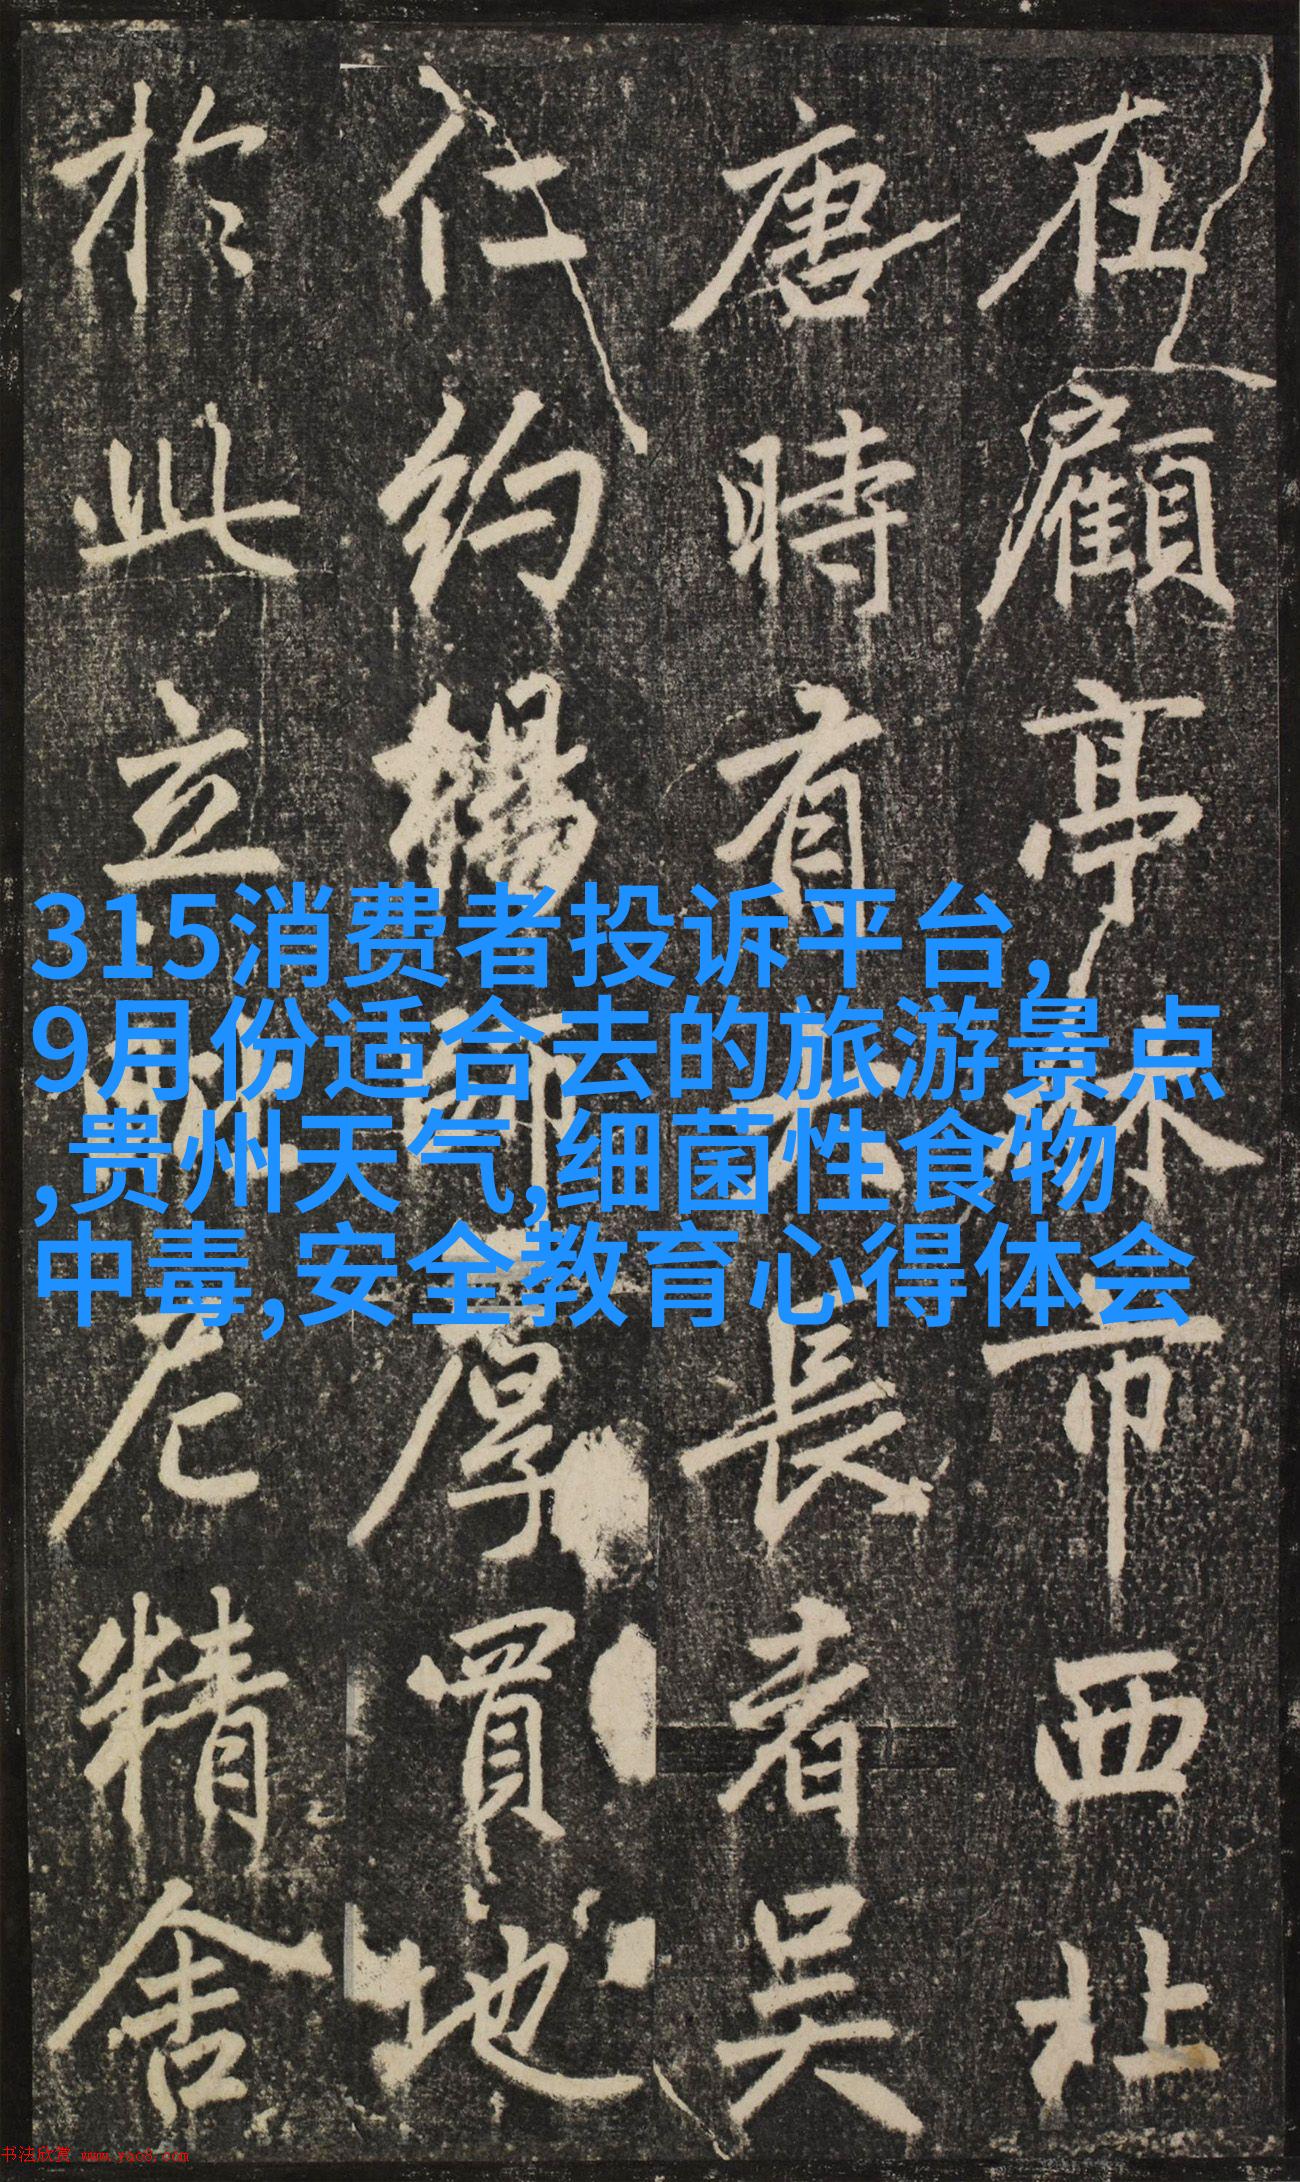 在顧亭林市西北
唐時有大長者吳
仁約楊
厚買地
於此立
尼精舍
315消费者投诉平台,
9月份适合去的旅游景点
,贵州天气,细菌性食物
中毒,安全教育心得体会
书法欣赏 www.yac8.com